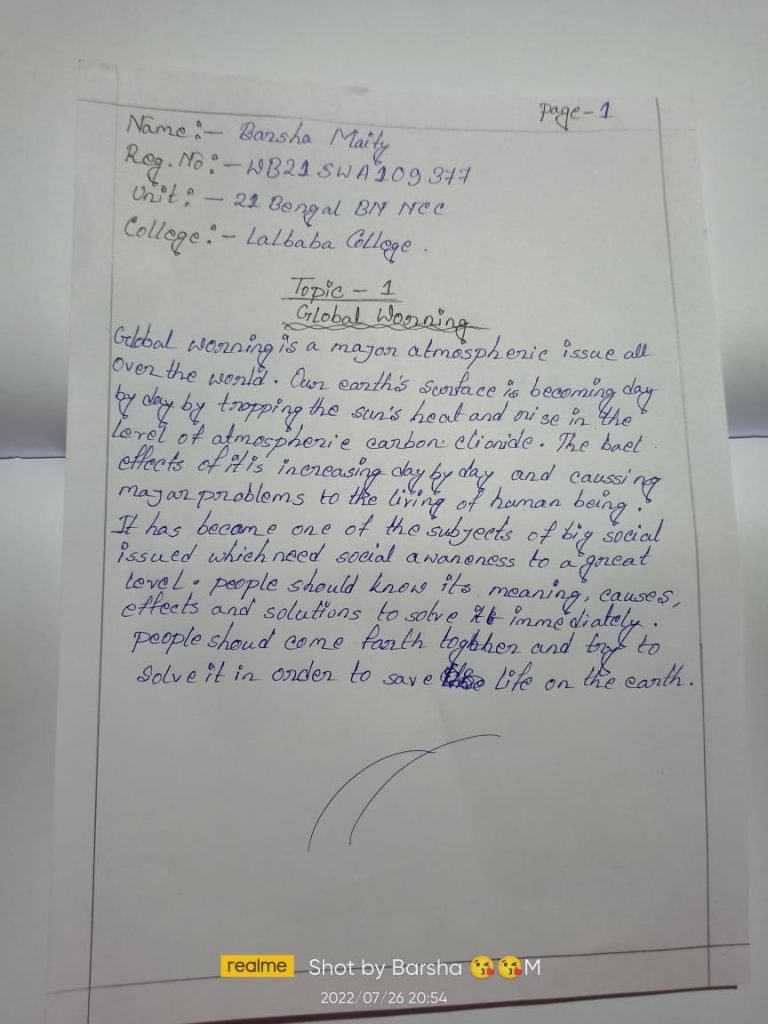 Page-1
Name:- Barsha Maity
Reg. No:- WB21SWA109377
Unit:- 21 Bengal BN NCC
College:- Lalbaba College.
Topic - 1
Global Worning
Global worning is a major atmospheric issue all
over the world. Our earth's surface is becoming day
by day by tropping the sun's heat and rise in the
level of atmospheric carbon clionide. The bael
effects of it is increasing day by day and caussing
majar problems to the living of human being.
It has become one of the subjects of big social
issued which need social awareness to a great
level. people should know its meaning, causes,
effects and solutions to solve it immediately.
people shoud come farth togbher and try to
solve it in order to save the life on the earth.
realme Shot by Barsha 😘😘M
2022/07/26 20:54